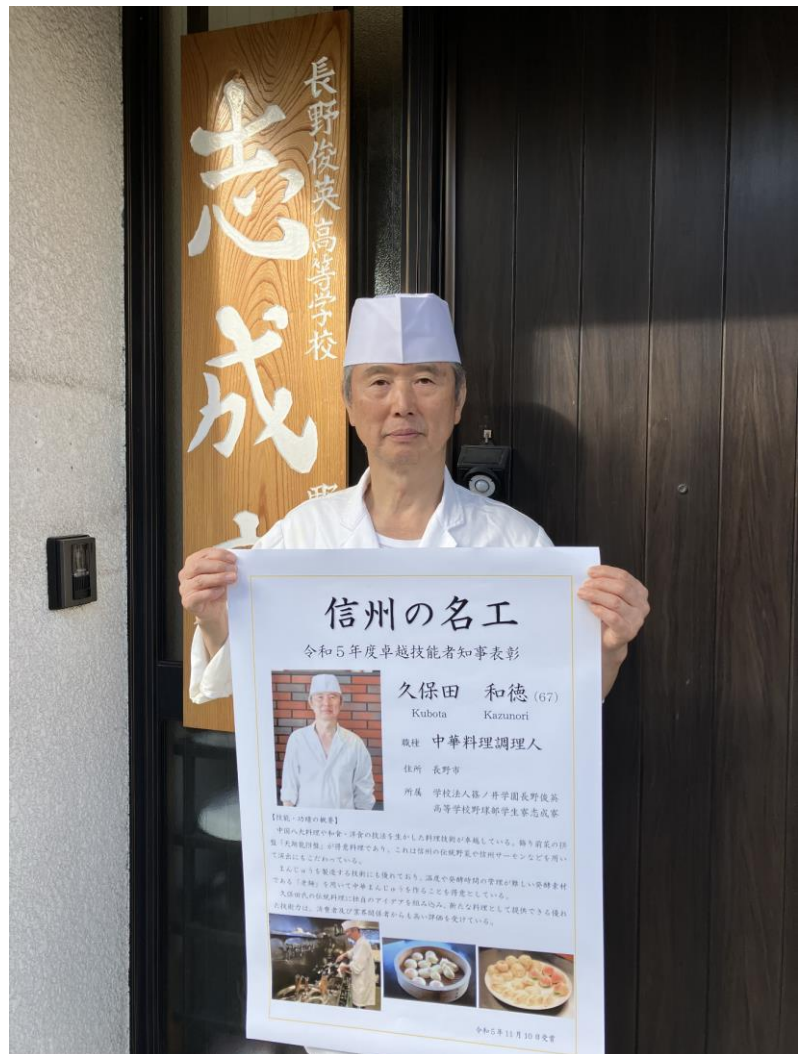 長野俊英高等学校
志成
信州の名工
令和5年度卓越技能者知事表彰
久保田 和徳(67)
Kubota Kazunori
職種 中華料理調理人
住所 長野市
所属 学校法人篠ノ井学園長野俊英
高等学校野球部学生寮志成寮
【技能・功績の概要】
中国八大料理や和食・洋食の技法を生かした料理技術が卓越している。飾り前菜の拼
盤「大拼盤」が得意料理であり、これは信州の伝統野菜や信州サーモンなどを用い
て演出にもこだわっている。
まんじゅうを製造する技術にも優れており、温度や発酵時間の管理が難しい発酵素材
である「老麺」を用いて中華まんじゅうを作ることも得意としている。
久保田氏の伝統料理に独自のアイデアを組み込み、新たな料理として提供できる優れ
た技術力は、消費者及び業界関係者からも高い評価を受けている。
令和5年11月10日受賞